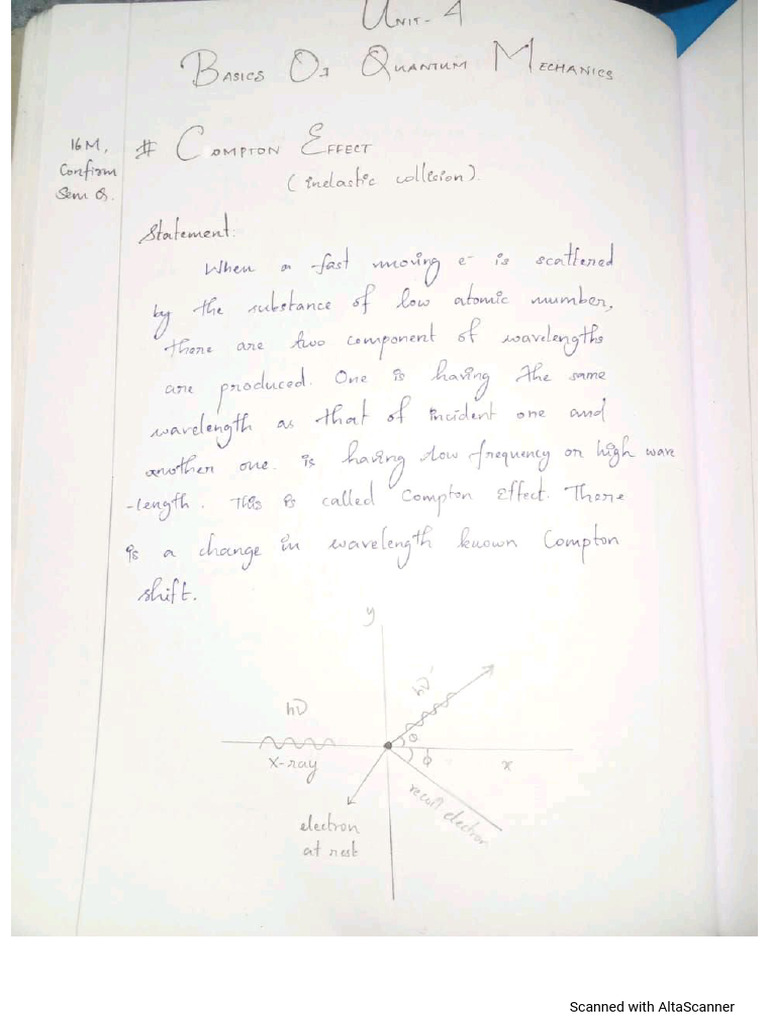 UNIT - 4
BASICS Of QUANTUM MECHANICS
16M,
Confirm
Sem Q.
# COMPTON EFFECT
(inelastic collision).
Statement:
When a fast moving e- is scattered
by the substance of low atomic number,
there are two component of wavelengths
are produced. One is having the same
wavelength as that of incident one and
another one. is having low frequency or high wave
-length. This is called Compton Effect. There
is a change in wavelength known Compton
shift.
y
hν'
hν
θ
x-ray
ϕ
x
recoil electron
electron
at rest
Scanned with AltaScanner